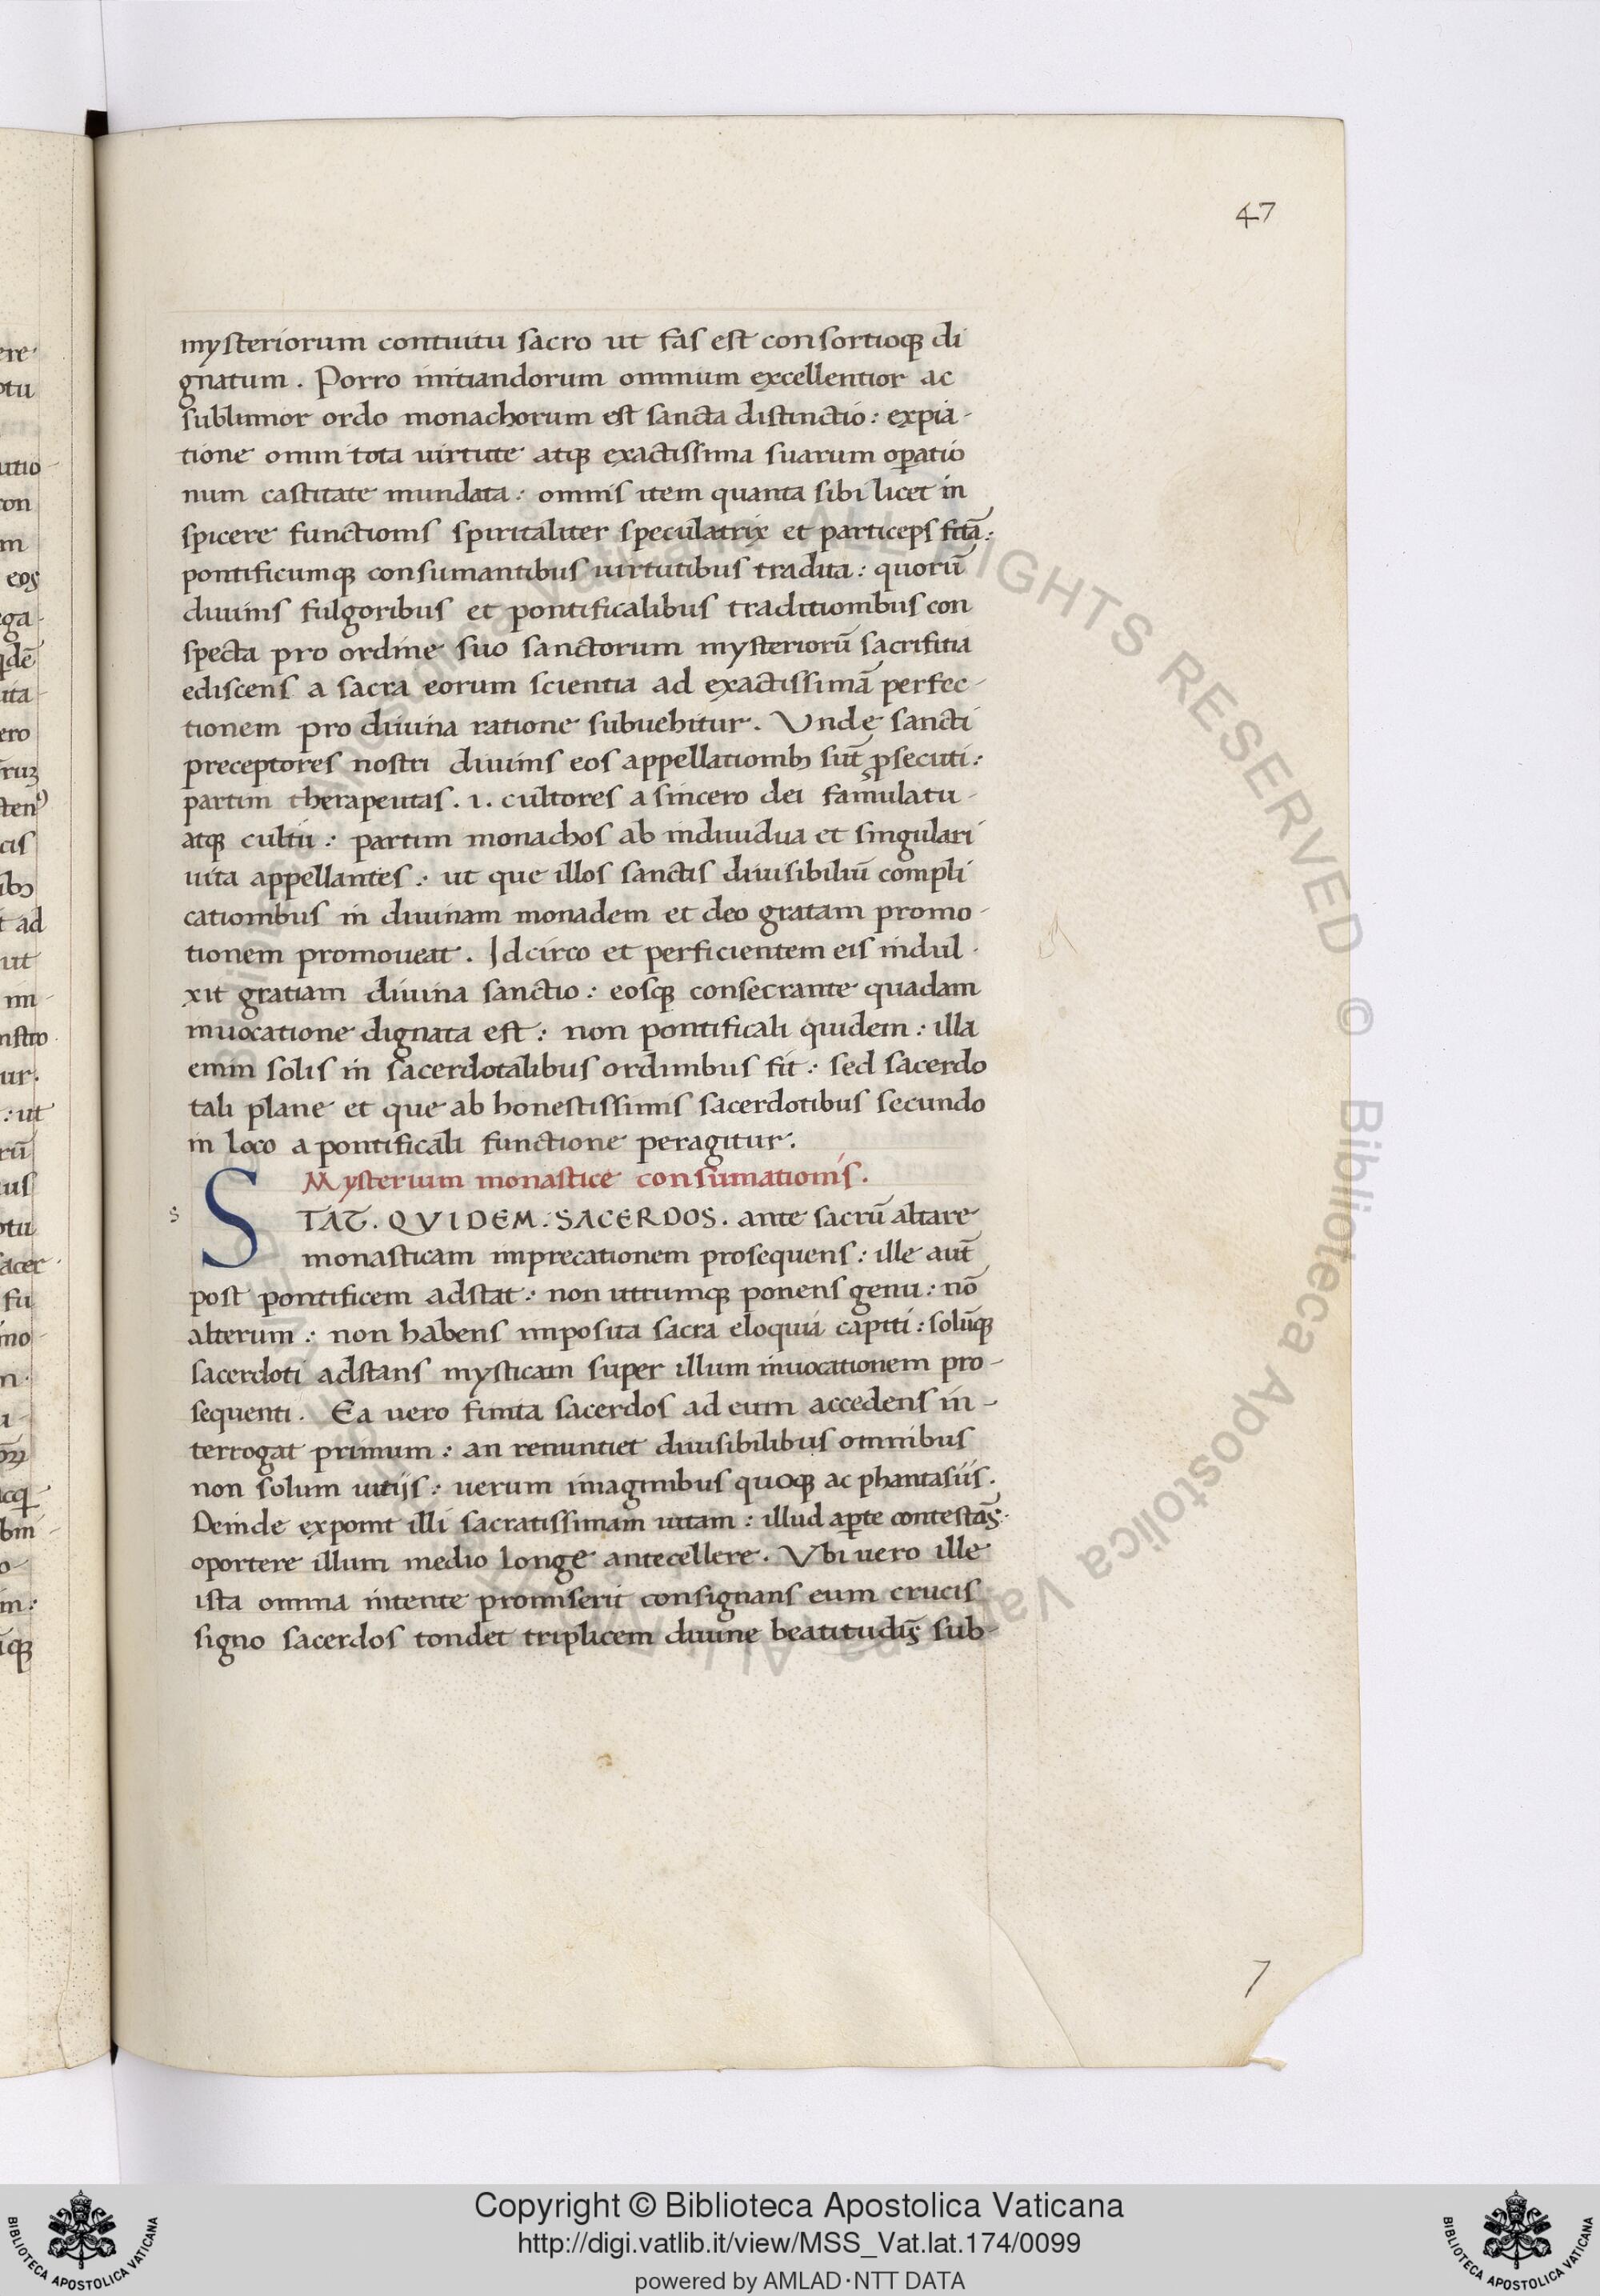 47
mysteriorum contuitu sacro ut fas est consortioq; di
gnatum. Porro initiandorum omnium excellentior ac
sublimior ordo monachorum est sancta distinctio: expia-
tione omni tota uirtute atq; exactissima suarum opatio
num castitate mundata: omnis item quanta sibi licet in
spicere functionis spiritaliter speculatrix et particeps fitā:
pontificumq; consumantibus uirtutibus tradita: quorū
diuinis fulgoribus et pontificalibus traditionibus con
specta pro ordine suo sanctorum mysteriorū sacrifitia
ediscens a sacra eorum scientia ad exactissimā perfec-
tionem pro diuina ratione subuehitur. Vndę sancti
preceptores nostri diuinis eos appellationib; sūt psecuti:
partim therapeutas. i. cultores a sincero dei famulatu-
atq; cultu: partim monachos ab indiuidua et singulari
uita appellantes: ut que illos sanctis diuisibiliū compli
cationibus in diuinam monadem et deo gratam promo-
tionem promoueat. Idcirco et perficientem eis indul-
xit gratiam diuina sanctio: eosq; consecrante quadam
inuocatione dignata est: non pontificali quidem: illa
enim solis in sacerdotalibus ordinibus fit: sed sacerdo
tali plane et que ab honestissimis sacerdotibus secundo
in loco a pontificali functione peragitur.
Mysterium monastice consumationis.
s
STAT. QVIDEM. SACERDOS. ante sacrū altare
monasticam imprecationem prosequens: ille aut̄
post pontificem adstat: non utrumq; ponens genu: nō
alterum: non habens imposita sacra eloquia capiti: solūq;
sacerdoti adstans mysticam super illum inuocationem pro-
sequenti. Ea uero finita sacerdos ad eum accedens in-
terrogat primum: an renuntiet diuisibilibus omnibus
non solum uitijs: uerum imaginibus quoq; ac phantasiis.
Deinde exponit illi sacratissimam uitam: illud apte contestās.
oportere illum medio longe antecellere. Vbi uero ille
ista omnia intente promiserit consignans eum crucis
signo sacerdos tondet triplicem diuine beatitudis̄ sub-
7
ALL RIGHTS RESERVED © Biblioteca Apostolica Vaticana
Copyright © Biblioteca Apostolica Vaticana
http://digi.vatlib.it/view/MSS_Vat.lat.174/0099
powered by AMLAD·NTT DATA
BIBLIOTECA APOSTOLICA VATICANA
BIBLIOTECA APOSTOLICA VATICANA